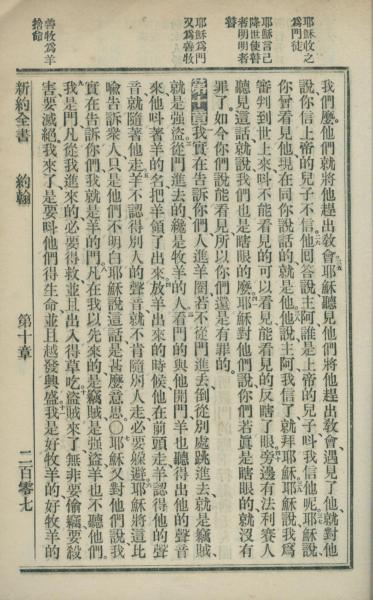 耶穌收之
為門徒
耶穌言己
降世使瞽
者明明者
瞽
耶穌為門
又為善牧
善牧為羊
捨命
我們麼。他們就將他趕出教會。耶穌聽見他們將他趕出教會、遇見了他、就對他
說、你信上帝的兒子不信。他回答說、主阿、誰是上帝的兒子、呌我信他呢。耶穌說、
你曾看見他、現在同你說話的就是他。他說、主阿、我信了、就拜耶穌。耶穌說、我為
審判到世上來、呌不能看見的可以看見、能看見的反瞎了眼。旁邊有法利賽人
聽見這話、就說、我們也是瞎眼的麼。耶穌對他們說、你們若真是瞎眼的、就沒有
罪了。如今你們說能看見、所以你們還是有罪的。
第十章 我實在告訴你們、人進羊圈、若不從門進去、倒從別處跳進去、就是竊賊、
就是強盜。從門進去的、纔是牧羊的人。看門的與他開門、羊也聽得出他的聲音
來、他呌著羊的名、把羊領了出來。放羊出來的時候、他在前頭走、羊認得他的聲
音、就隨著他走。羊不認得別人的聲音、就不肯隨別人走、必要躲避。耶穌將這比
喻告訴衆人、只是他們不明白耶穌說這話是甚麼意思○耶穌又對他們說、我
實在告訴你們、我就是羊的門。凡在我以先來的、是竊賊、是强盜、羊也不聽他們。
我是門、凡從我進來的、必要得救、並且出入得草吃。盜賊來了、無非要偷竊、要殺
害、要滅絕、我來了、是要呌他們得生命、並且越發興盛。我是好牧羊的、好牧羊的
新約全書 約翰 第十章 二百零七